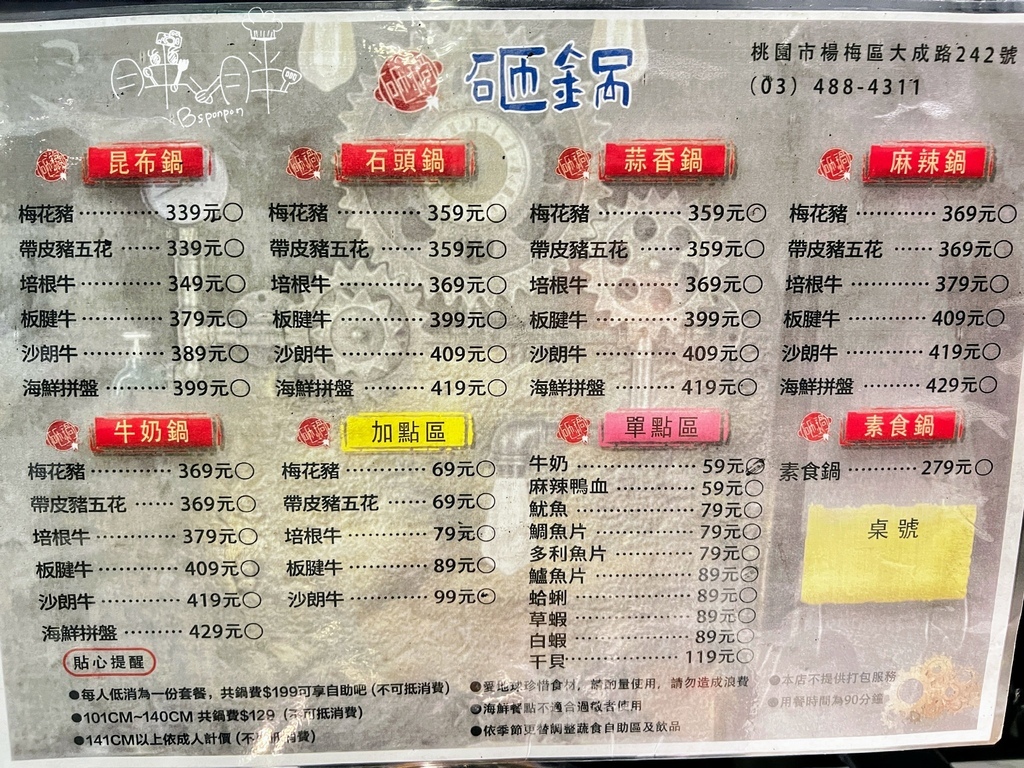 Bsponpon
砸鍋
砸鍋
桃園市楊梅區大成路242號
(03) 488-4311
昆布鍋
梅花豬 ············ 339元○
帶皮豬五花 ······ 339元○
培根牛 ············ 349元○
板腱牛 ············ 379元○
沙朗牛 ············ 389元○
海鮮拼盤 ········· 399元○
石頭鍋
梅花豬 ············ 359元○
帶皮豬五花 ······ 359元○
培根牛 ············ 369元○
板腱牛 ············ 399元○
沙朗牛 ············ 409元○
海鮮拼盤 ········· 419元○
蒜香鍋
梅花豬 ············ 359元○
帶皮豬五花 ······ 359元○
培根牛 ············ 369元○
板腱牛 ············ 399元○
沙朗牛 ············ 409元○
海鮮拼盤 ········· 419元○
麻辣鍋
梅花豬 ············ 369元○
帶皮豬五花 ······ 369元○
培根牛 ············ 379元○
板腱牛 ············ 409元○
沙朗牛 ············ 419元○
海鮮拼盤 ········· 429元○
牛奶鍋
梅花豬 ············ 369元○
帶皮豬五花 ······ 369元○
培根牛 ············ 379元○
板腱牛 ············ 409元○
沙朗牛 ············ 419元○
海鮮拼盤 ········· 429元○
加點區
梅花豬 ············ 69元○
帶皮豬五花 ······ 69元○
培根牛 ············ 79元○
板腱牛 ············ 89元○
沙朗牛 ············ 99元○
單點區
牛奶 ·················· 59元○
麻辣鴨血 ············ 59元○
魷魚 ·················· 79元○
鯛魚片 ··············· 79元○
多利魚片 ············ 79元○
鱸魚片 ··············· 89元○
蛤蜊 ·················· 89元○
草蝦 ·················· 89元○
白蝦 ·················· 89元○
干貝 ·················· 119元○
素食鍋
素食鍋 ············ 279元○
桌號
貼心提醒
●每人低消為一份套餐，共鍋費$199可享自助吧 (不可抵消費)
●101CM~140CM 共鍋費$129 (不可抵消費)
●141CM以上依成人計價 (不可抵消費)
●愛地球珍惜食材，請酌量使用，請勿造成浪費
●海鮮餐點不適合過敏者使用
●依季節更替調整蔬食自助區及飲品
●本店不提供打包服務
●用餐時間為90分鐘